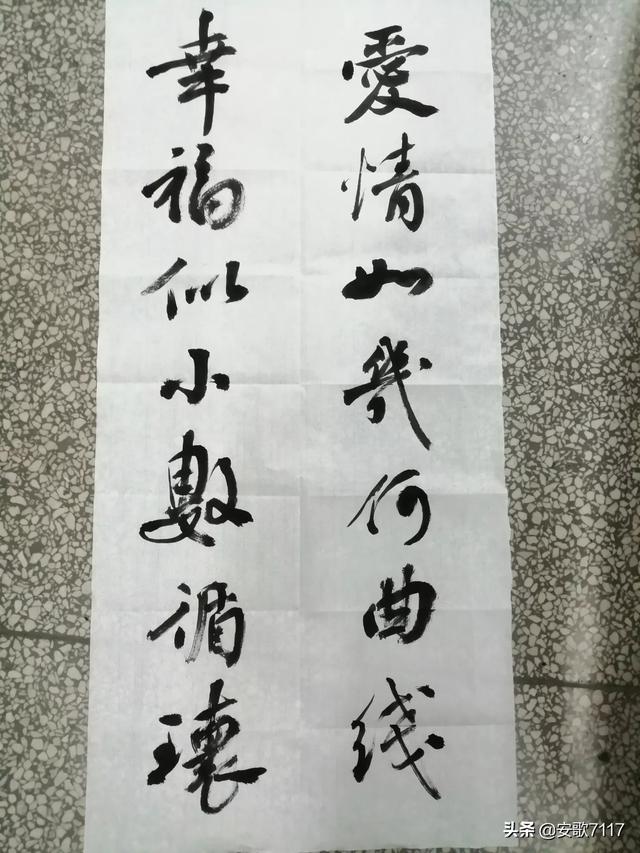 愛情如幾何曲线
幸福似小數循環
头条 @安歌7117